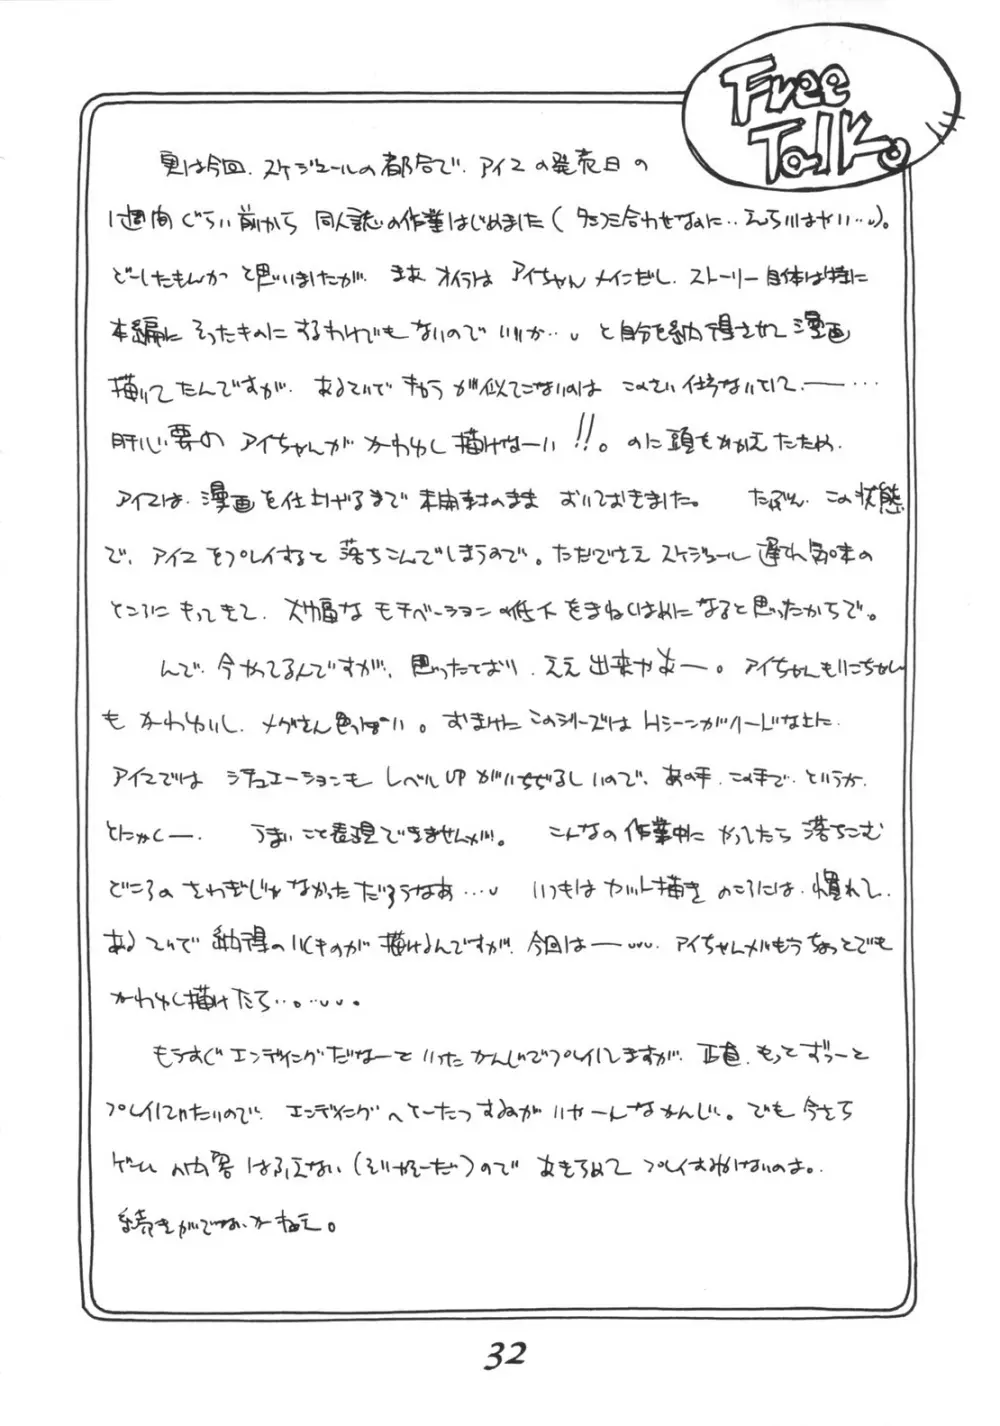 Free
Talk。
実は今回、スケジュールの都合で、アイ2の発売日の
1週間ぐらい前から同人誌の作業はじめました(タニウミ合わせなのに‥えらいはやい‥)。
どーしたもんかと思いましたが、まあオイラはアイちゃんメインだし、ストーリー自体は特に
本編にそったものにするわけでもないのでいいか‥と自分を納得させて漫画
描いてたんですが、あるていどキャラが似てこないのはこのさい仕方ないとして、ー‥‥
肝心要のアイちゃんがかわゆく描けなーい!!。のに頭をかかえたため、
アイ2は、漫画を仕上げるまで未開封のままおいておきました。たぶん、この状態
で、アイ2をプレイすると落ちこんでしまうので。ただでさえスケジュール遅れ気味の
ところにもってきて、大幅なモチベーションの低下をまねくはめになると思ったからで。
んで、今やってるんですが、思ったとおり、ええ出来やぁー。アイちゃんもりこちゃん
もかわいいし、メグさん色っぽい。おまけにこのシリーズはHシーンがハードな上に、
アイ2ではシチュエーションもレベルUPがいちぢるしいので、あの手、この手で、というか、
とにかくー、うまいこと表現できませんが。こんなの作業中にやってたら落ちこむ
どころのさわぎじゃなかっただろうなあ‥‥いつもはカット描きのころには、慣れて、
あるていど納得のいくものが描けるんですが、今回はー‥‥、アイちゃんがもうちょっとでも
かわゆく描けたら‥。‥‥。
もうすぐエンディングだなーといったかんじでプレイしてますが、正直、もっとずっーと
プレイしていたいので、エンディングへとーたつするのがいやーんなかんじ。でも今さら
ゲームの内容はふえない(そりゃそーだ)のであきらめてプレイするしかないのよ。
続きがでないかねえ。
32